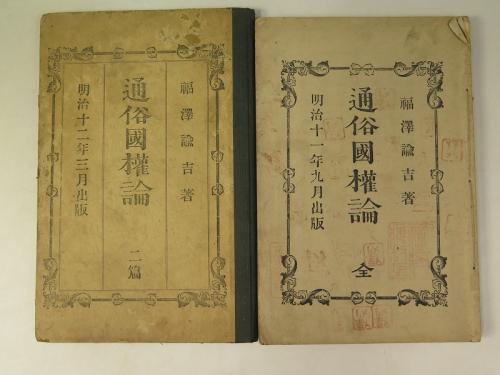 福澤諭吉著
通俗國權論
二篇
明治十二年三月出版
福澤諭吉著
通俗國權論
全
明治十一年九月出版